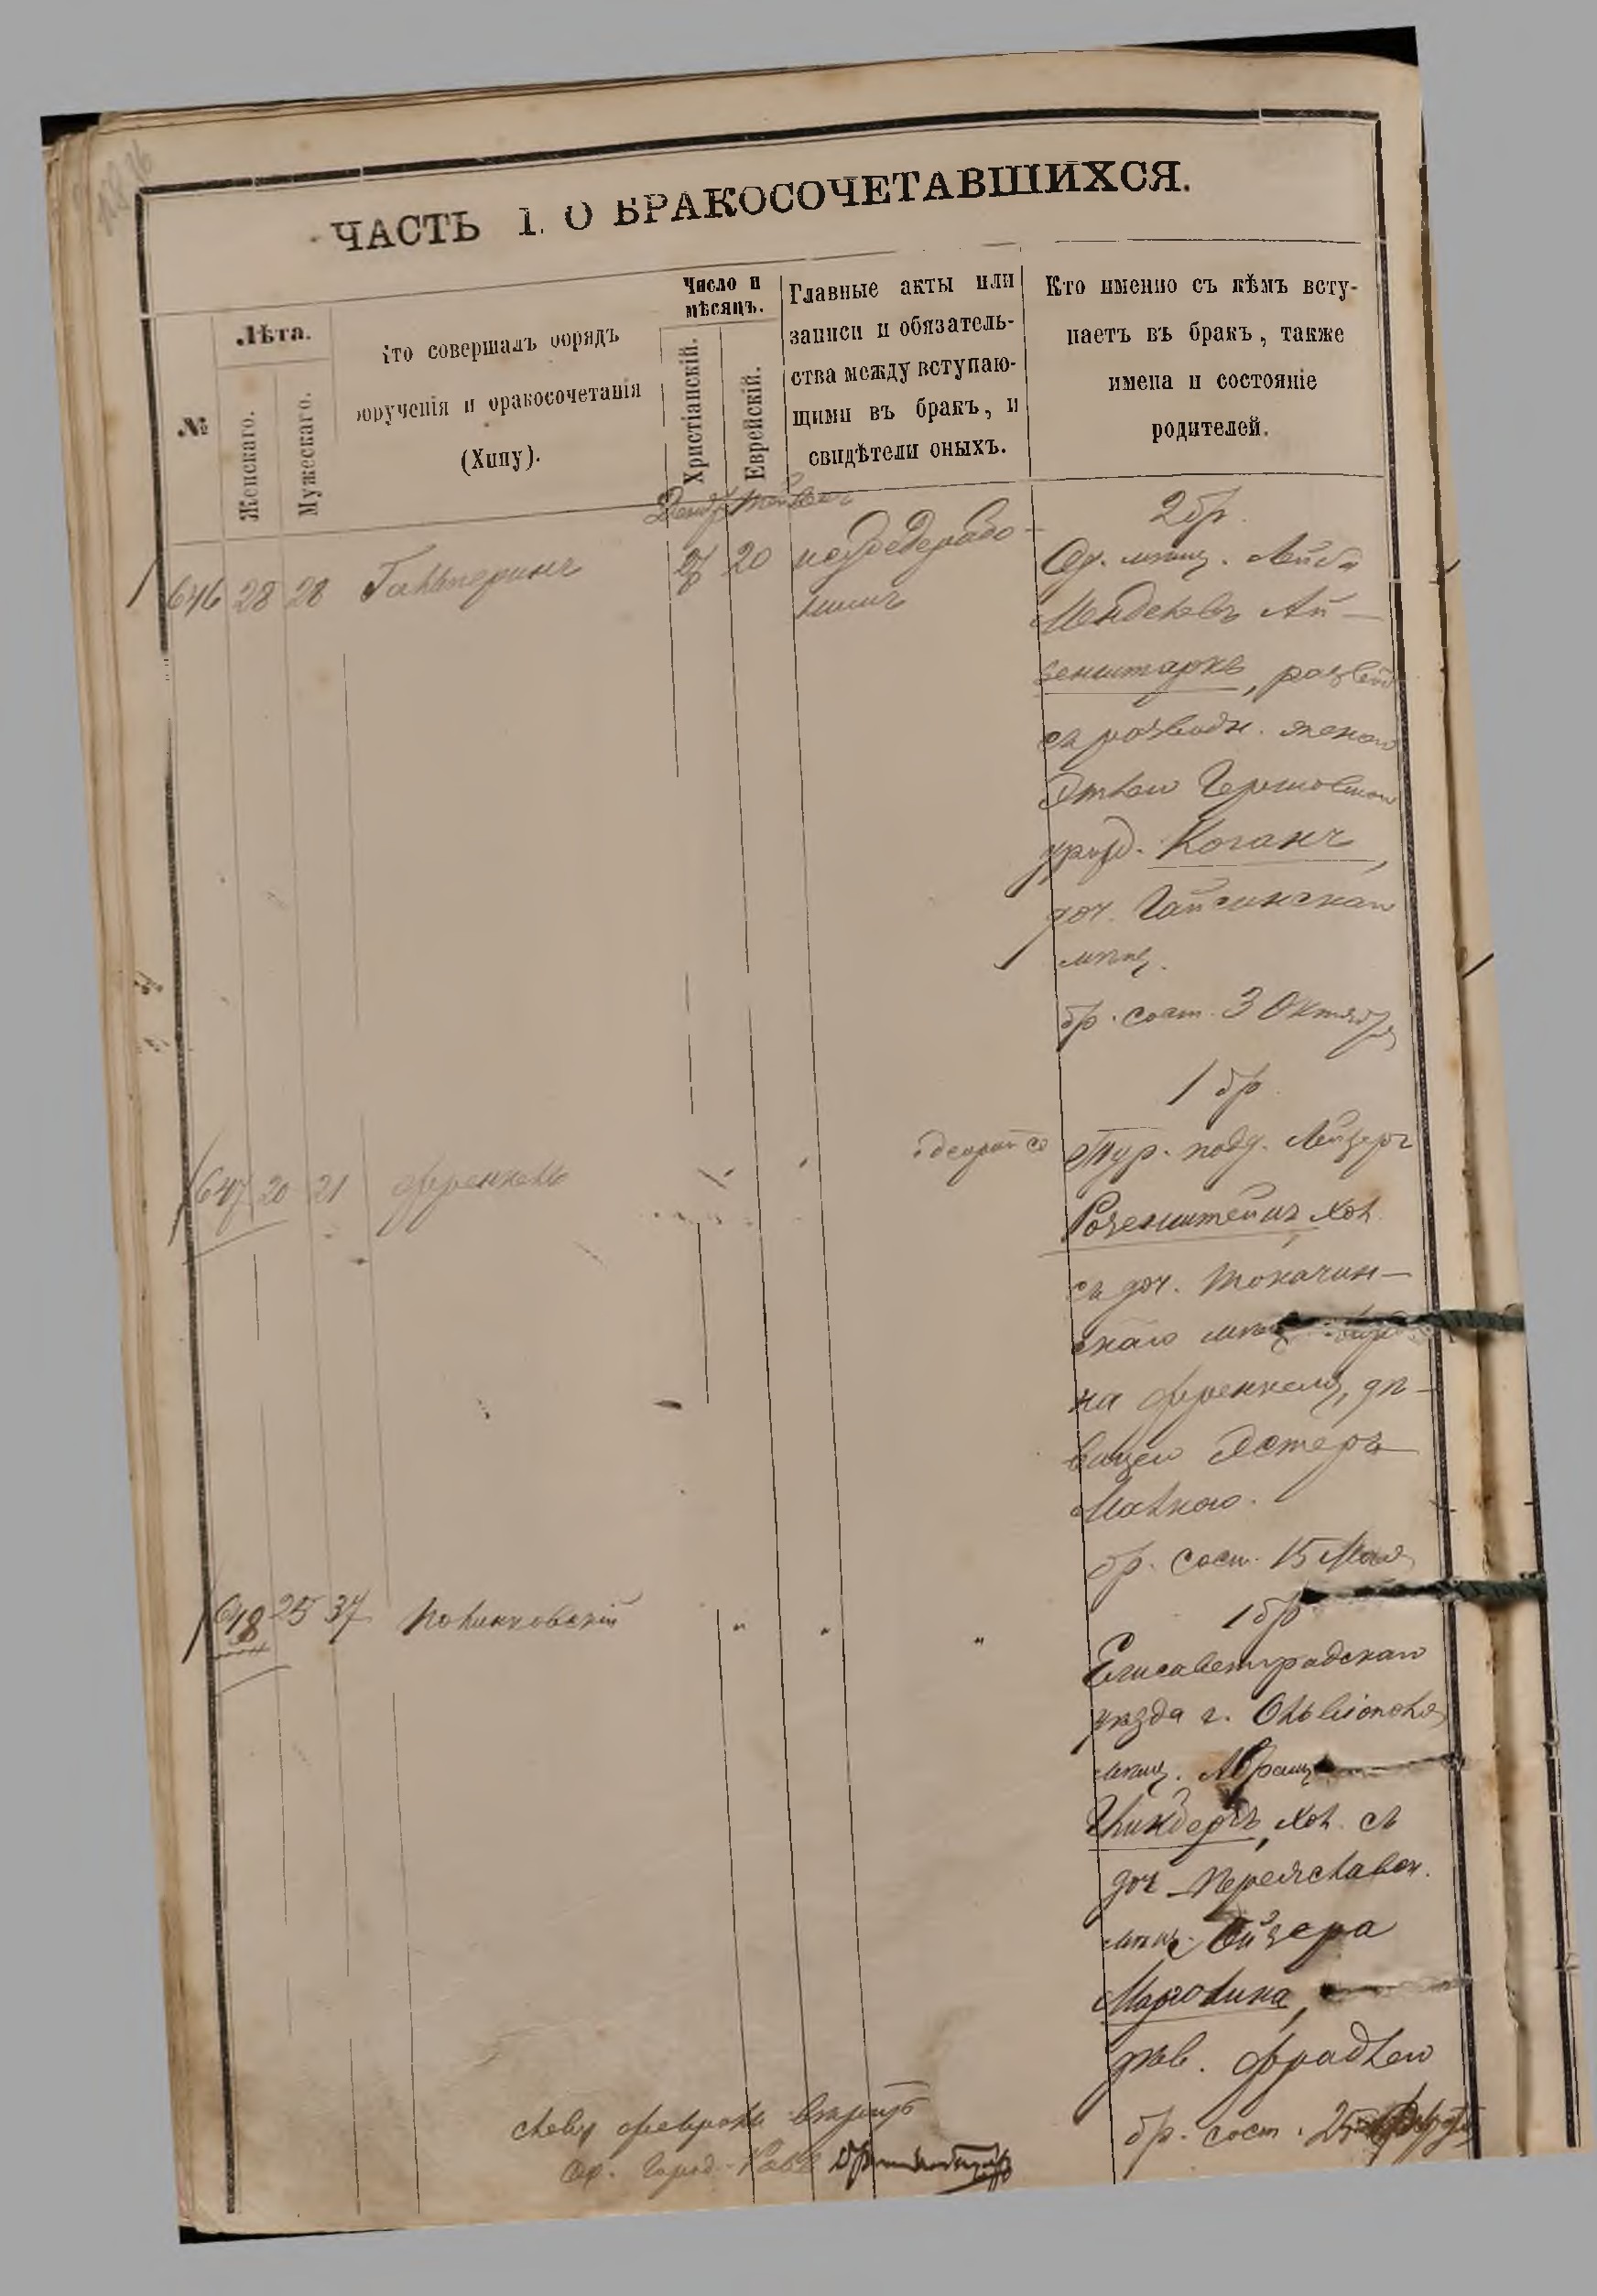 ЧАСТЬ I. О БРАКОСОЧЕТАВШИХСЯ.
№
Лѣта.
Женскаго.
Мужескаго.
кто совершалъ обрядъ
обрученія и бракосочетанія
(Хипу).
Число и
мѣсяцъ.
Христіанскій.
Еврейскій.
Главные акты или
записи и обязатель-
ства между вступаю-
щими въ бракъ, и
свидѣтели оныхъ.
Кто именно съ кѣмъ всту-
паетъ въ бракъ, также
имена и состояніе
родителей.
646 28 28 Гальперинъ
20
2 бр.
Од. мѣщ. Лейба
Менделевъ Ай-
зенштаркъ, развед.
съ разводн. женою
Этлею Гершовною
урожд. Коганъ,
доч. Гайсинскаго
мѣщ.
бр. сост. 3 Октября
1 бр.
647 20 21 Френкель
Тур. подд. Лейзеръ
Розенштейнъ, хол.
съ доч. Токачин-
скаго мѣщ.
на Френкеля, дѣ-
вицею Эстеръ
Малкою.
бр. сост. 15 Мая
1 бр.
648 25 37 Полинковскій " " "
Елисаветградскаго
уѣзда г. Ольвіополя
мѣщ. Абрамъ
Цикдеръ, хол. съ
доч. Переяславск.
мѣщ. Ойзера
Марголина,
дѣв. Фрадлею
бр. сост. 25
Од. Город. Рав.